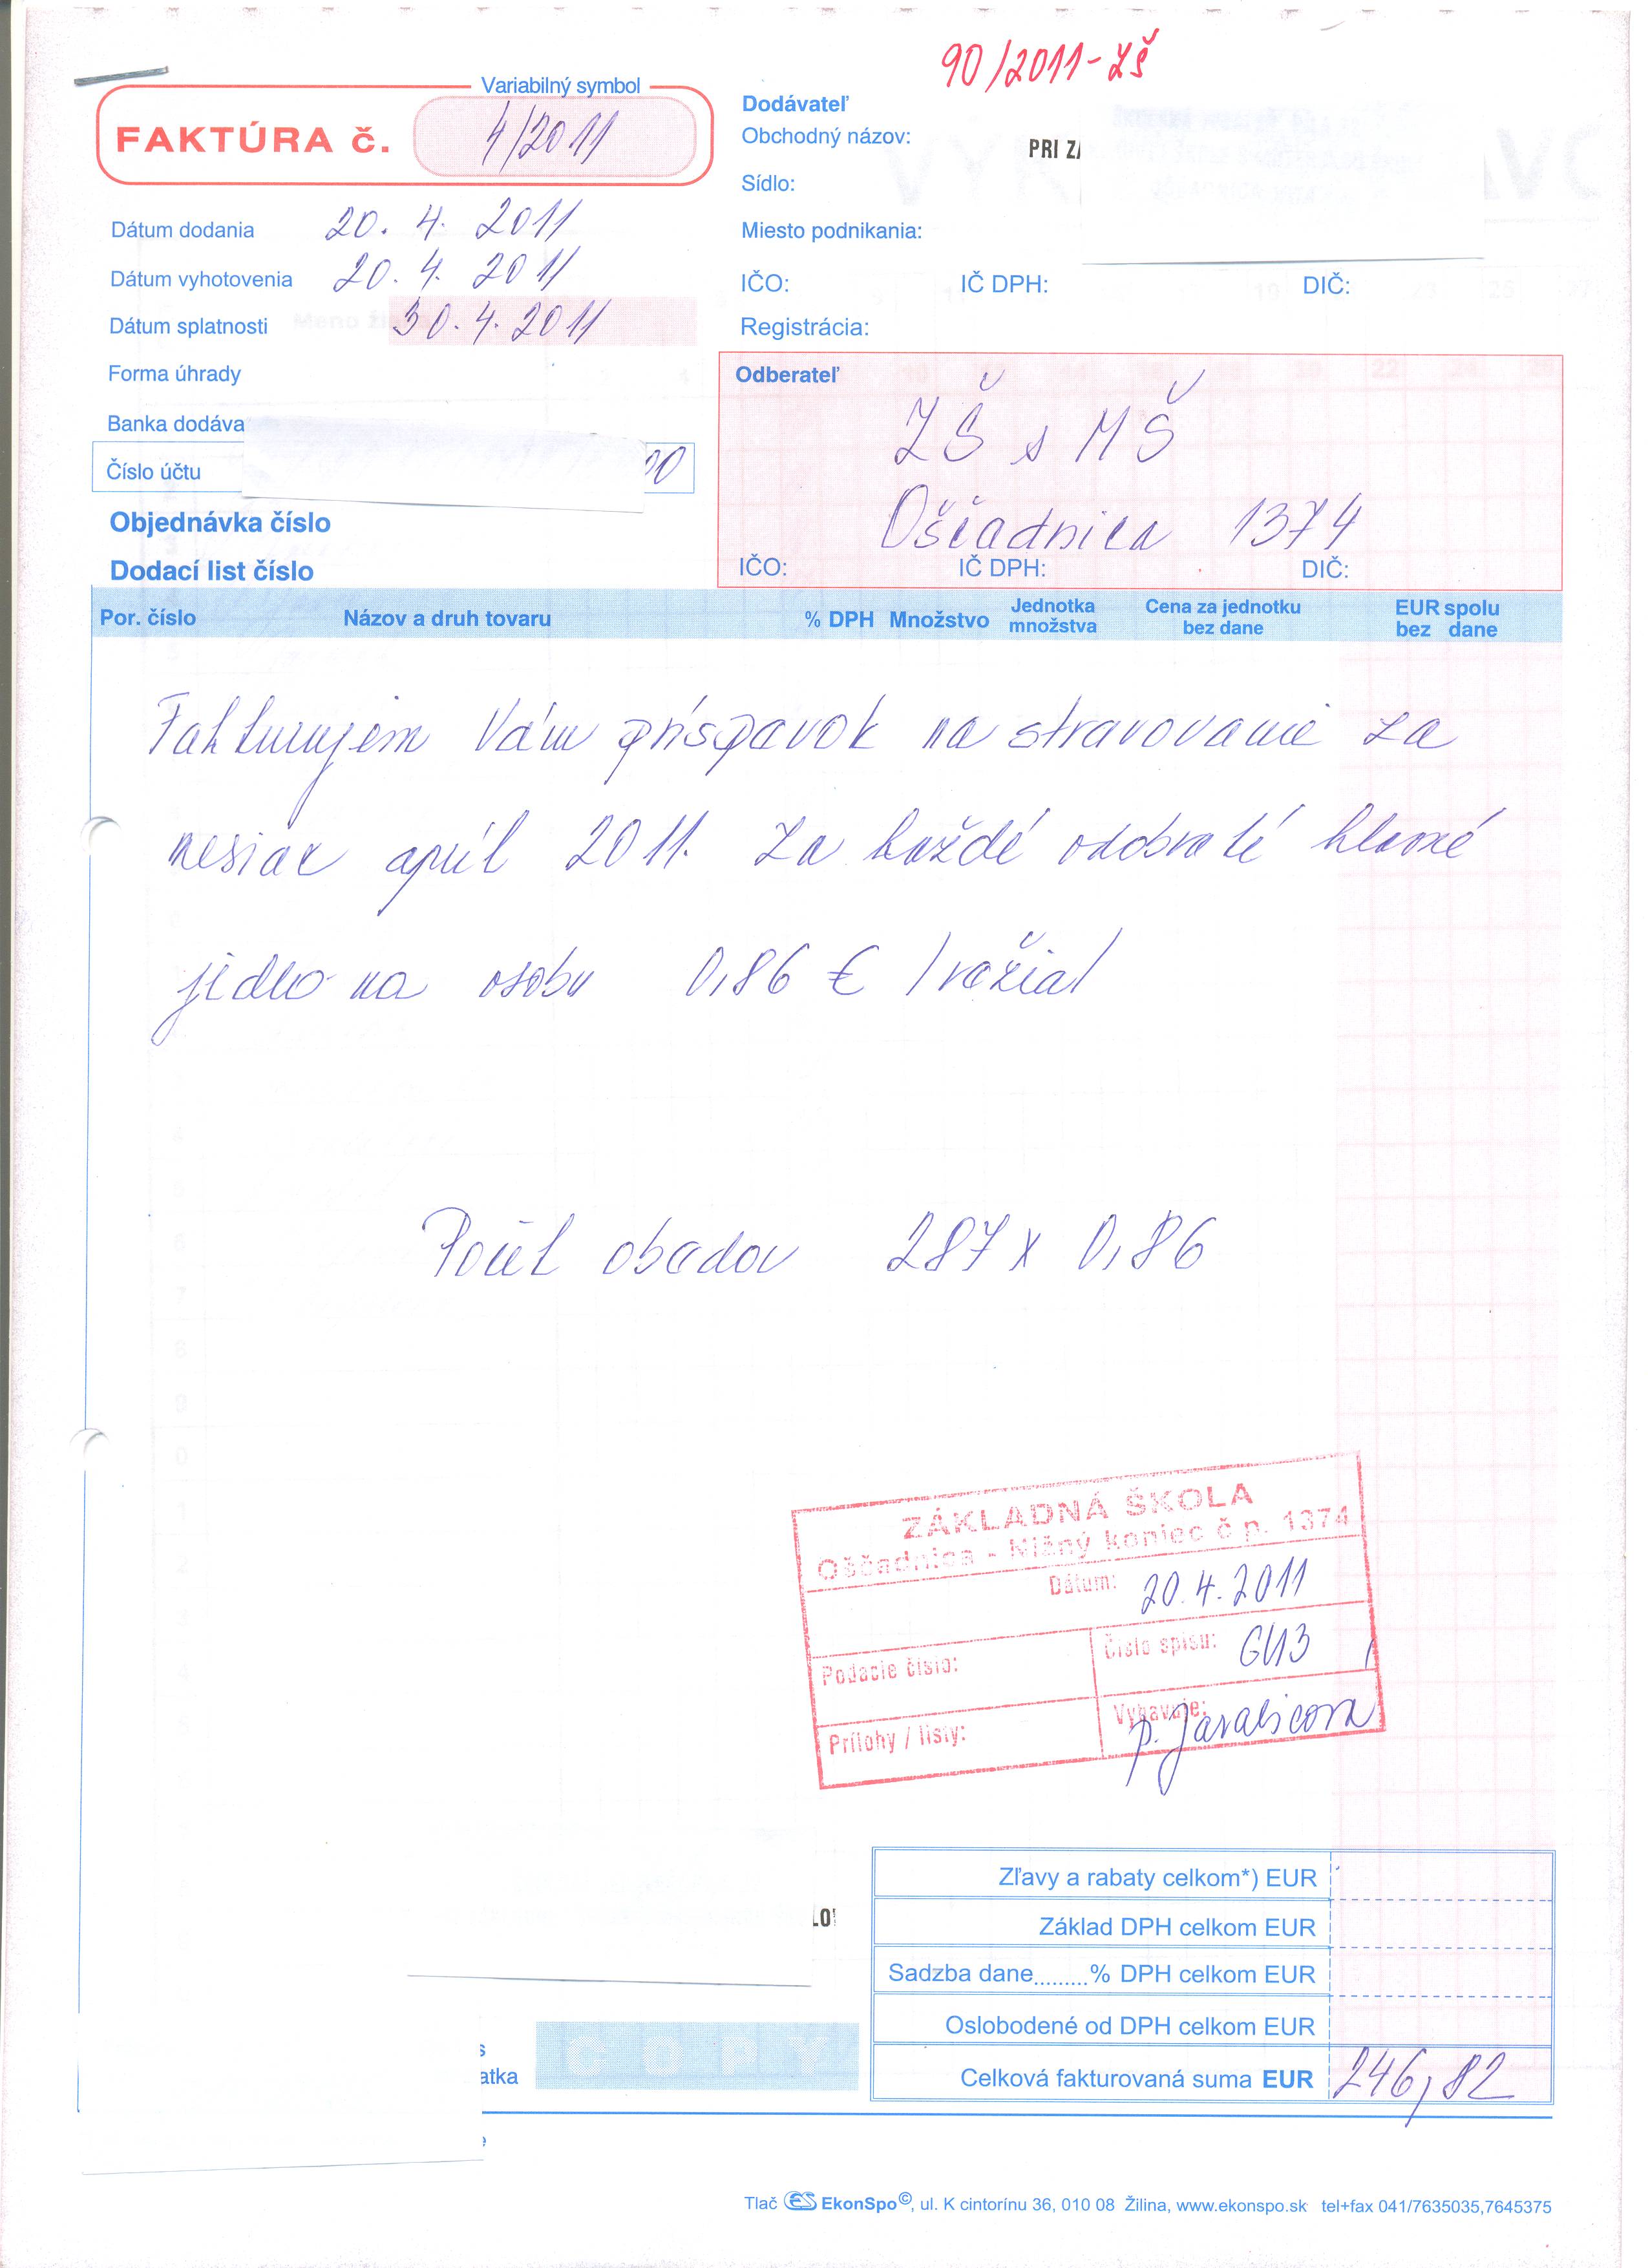 90/2011-ZŠ
Variabilný symbol
FAKTÚRA č. 4/2011
Dátum dodania 20. 4. 2011
Dátum vyhotovenia 20. 4. 2011
Dátum splatnosti 30. 4. 2011
Forma úhrady
Banka dodáva
Číslo účtu
Objednávka číslo
Dodací list číslo
Dodávateľ
Obchodný názov: PRI
Sídlo:
Miesto podnikania:
IČO: IČ DPH: DIČ:
Registrácia:
Odberateľ
ZŠ s MŠ
Oščadnica 1374
IČO: IČ DPH: DIČ:
Por. číslo Názov a druh tovaru % DPH Množstvo Jednotka množstva Cena za jednotku bez dane EUR spolu bez dane
Fakturujem Vám príspavok na stravovanie za
mesiac apríl 2011. Za každé odobraté hlavné
jidlo na osobu 0,86 € /režia/
Počet obedov 287 x 0,86
ZÁKLADNÁ ŠKOLA
Oščadnica - Nižný koniec č.p. 1374
Dátum: 20.4.2011
Podacie číslo: Číslo spisu:
Prílohy / listy: Vybavuje: p.
Zľavy a rabaty celkom*) EUR
Základ DPH celkom EUR
Sadzba dane.........% DPH celkom EUR
Oslobodené od DPH celkom EUR
Celková fakturovaná suma EUR 246,82
atka
COPY
Tlač ES EkonSpo©, ul. K cintorínu 36, 010 08 Žilina, www.ekonspo.sk tel+fax 041/7635035,7645375